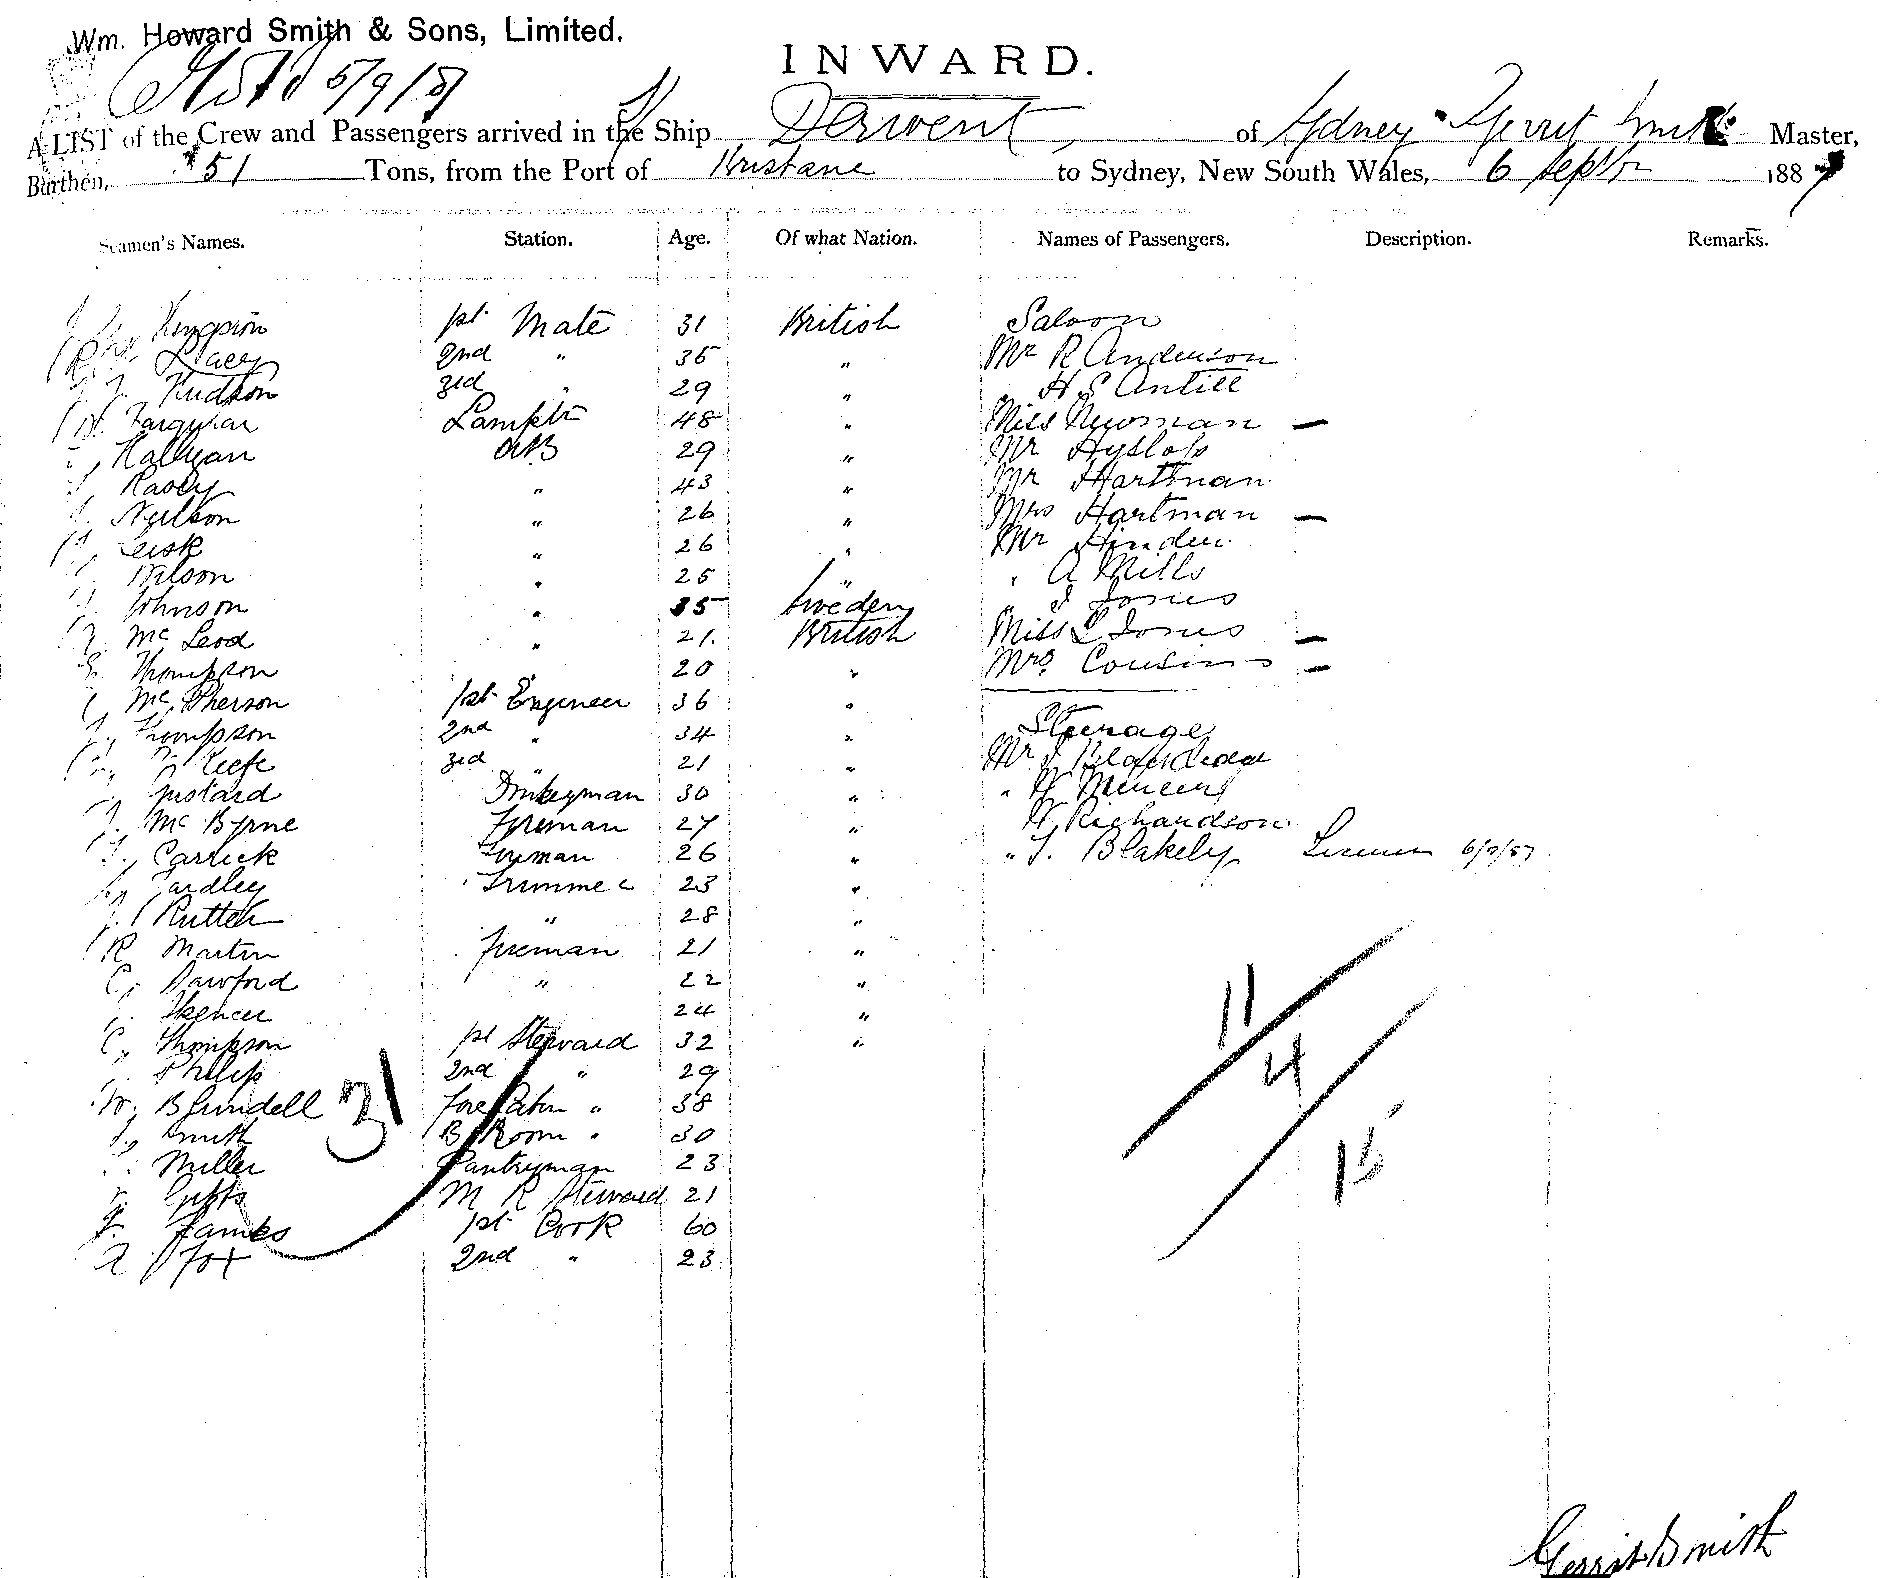 Wm. Howard Smith & Sons, Limited.
INWARD.
5/9/87
A LIST of the Crew and Passengers arrived in the Ship Derwent, of Sydney Gerrit Smith Master,
Burthen, 51 Tons, from the Port of Brisbane to Sydney, New South Wales, 6 Septbr 1887
Seamen's Names. Station. Age. Of what Nation. Names of Passengers. Description. Remarks.
1st Mate 31 British Saloon
Lacey 2nd " 35 " Mr R Anderson
Hudson 3rd " 29 " " H S Antill
Farquhar Lamptr 48 " Miss Newman –
AB 29 " Mr Hyslop
Kasey " 43 " Mr Hartman
Neilson " 26 " Mrs Hartman –
Leisk " 26 " Mr
Wilson " 25 " " A Mills
Johnson " 35 Sweden " J Jones
McLeod " 21 British Miss L Jones –
Thompson " 20 " Mrs Cousins –
McPherson 1st Engineer 36 "
Thompson 2nd " 34 " Steerage
O'Keefe 3rd " 21 " Mr J
Gustard Donkeyman 30 "
McByrne Fireman 27 " W Richardson
Carrick Fireman 26 " " T. Blakely 6/9/87
Yardley Trimmer 23 "
Rutter " 28 "
R Martin Fireman 21 "
C, " 22 "
Spencer 24 "
C, Thompson 1st Steward 32 "
Philip 2nd " 29
W, Blundell Fore Cabin " 38
Smith B Room " 30
Miller Pantryman 23
Gibbs M R Steward 21
James 1st Cook 60
Fox 2nd " 23
31
11
4
15
Gerrit Smith